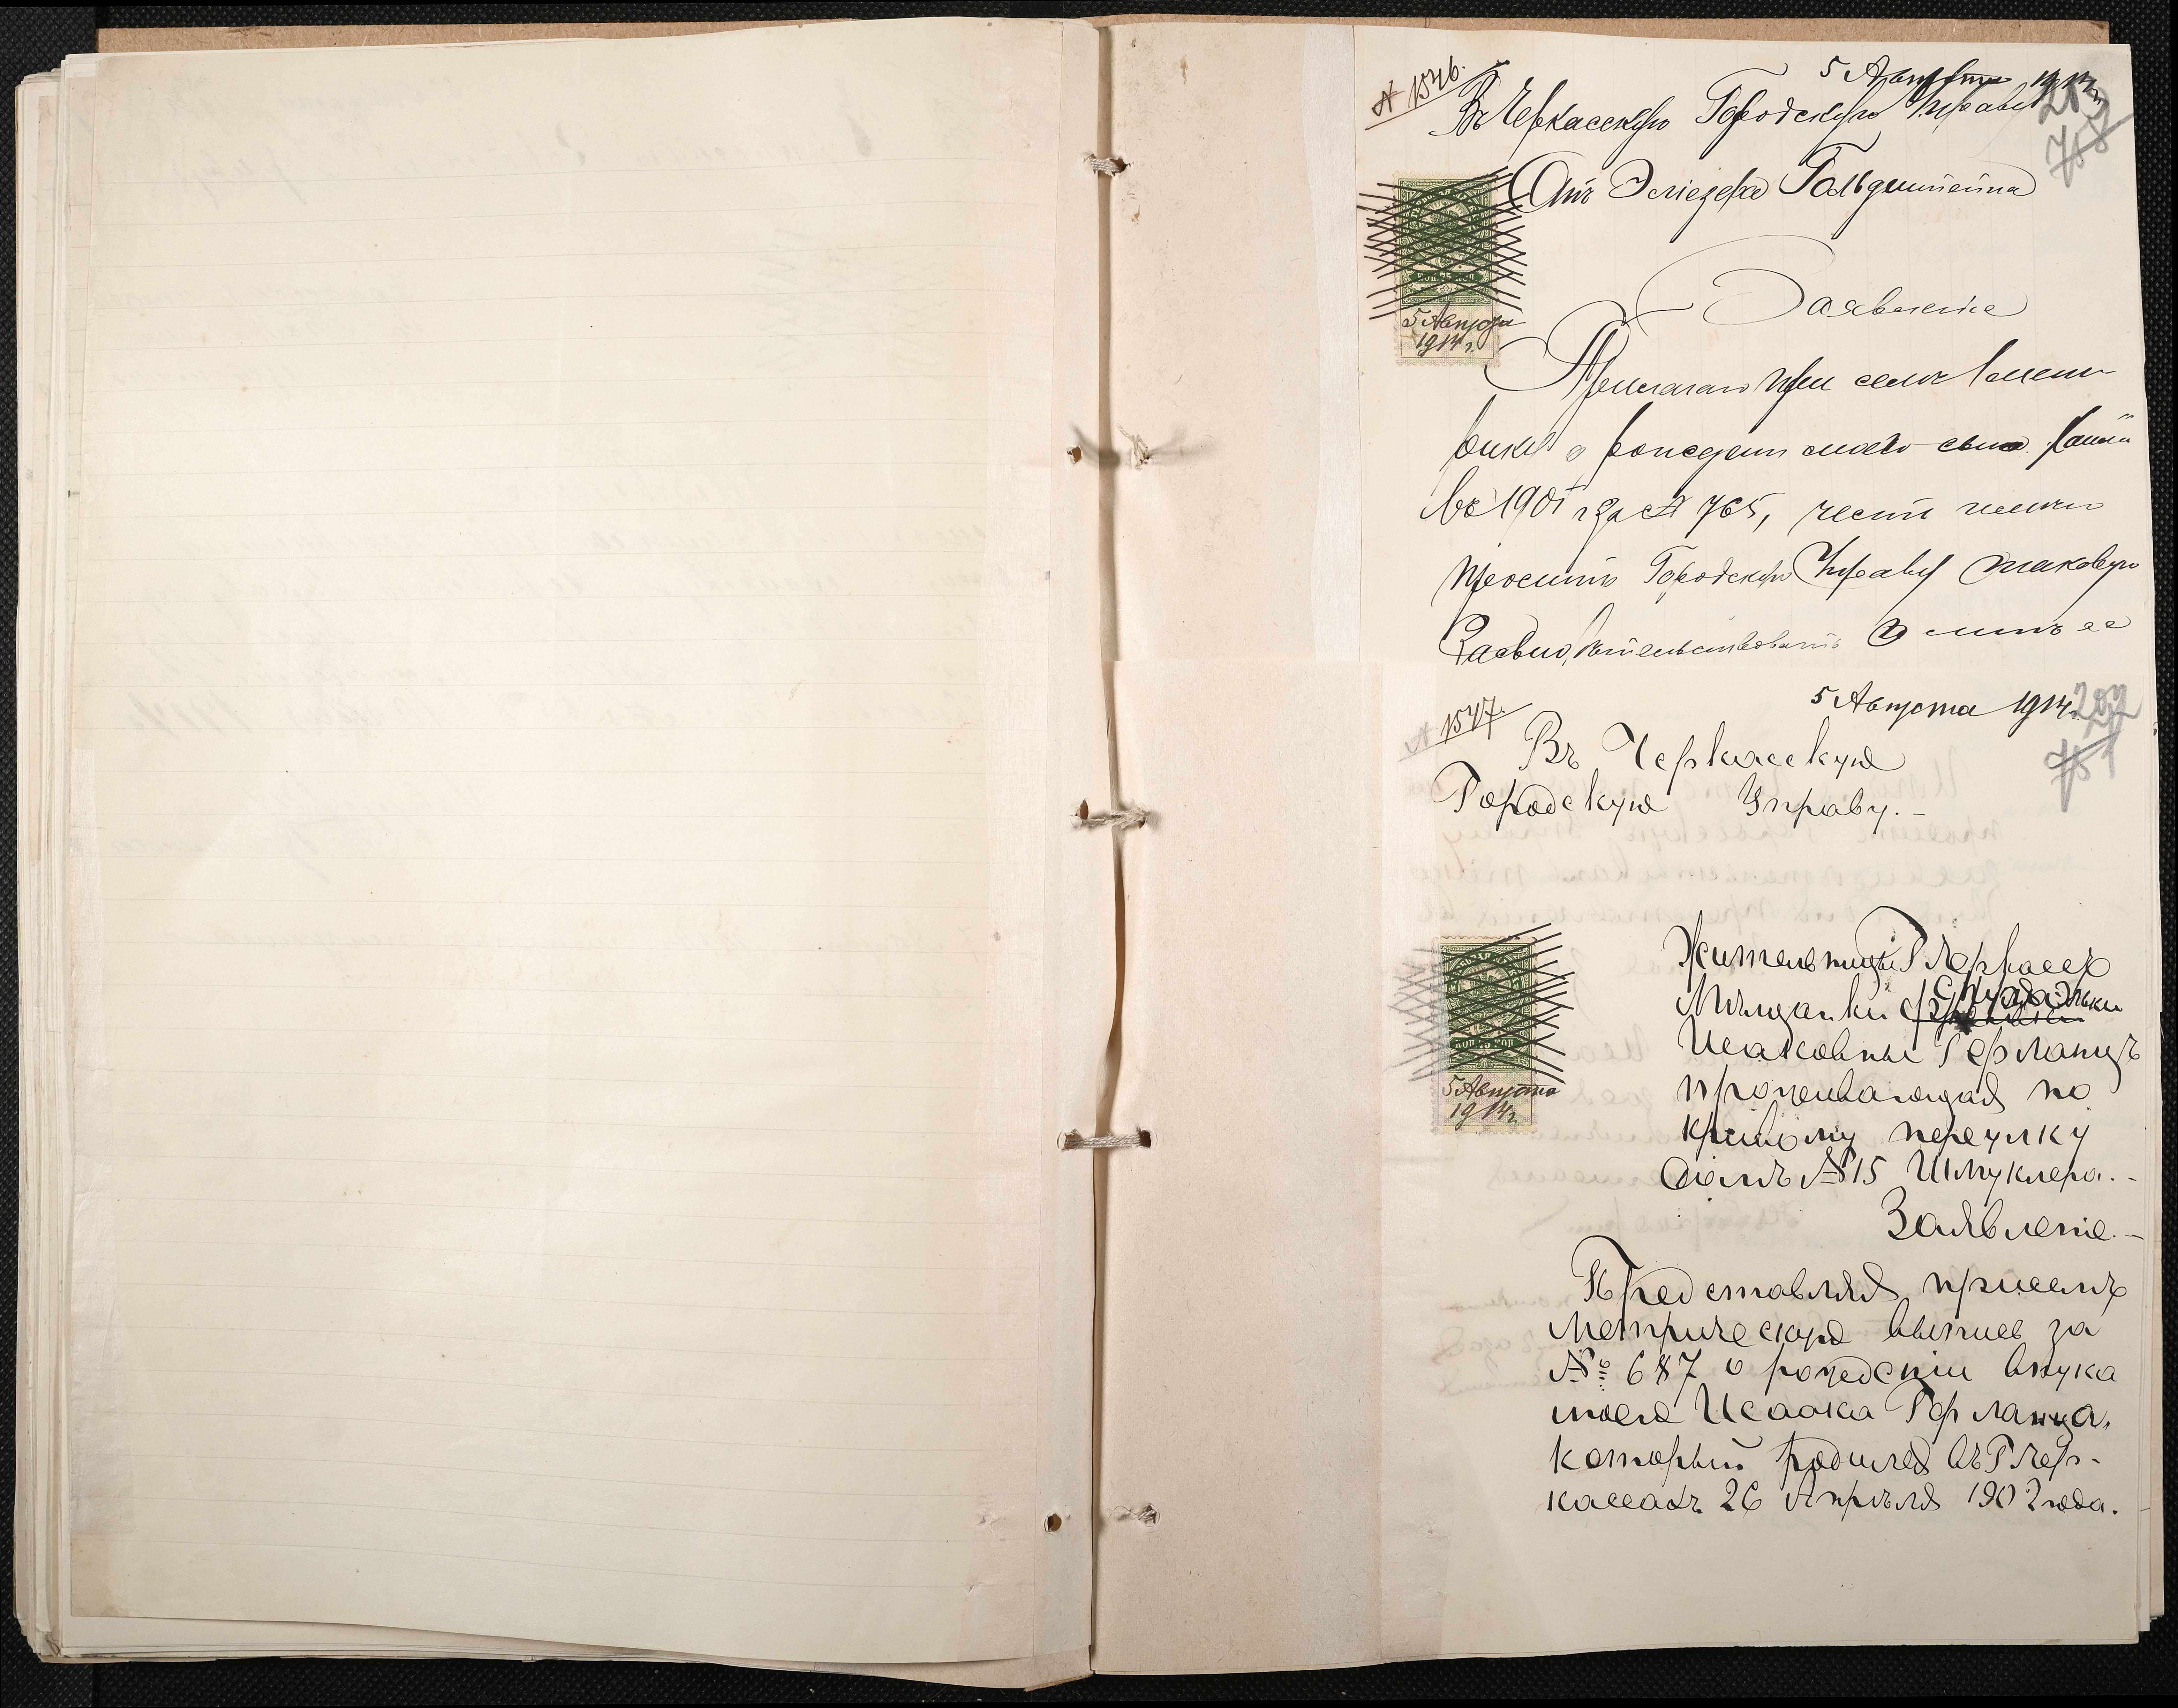 5 Августа 1914 г.
№ 1546.
Въ Черкасскую Городскую Управу
203
Отъ Эліезера Гольдштейна
КОП 75 КОП
5 Августа
1914 г.
Заявленіе
Прилагаю при семъ
о рожденіи моего сына
въ 1901 г за № 765, честь имѣю
просить Городскую Управу таковую
Засвидѣтельствовать
5 Августа 1914 г.
202
№ 1547.
751
Въ Черкасскую
Городскую Управу.-
КОП 75 КОП
5 Августа
1914 г.
Жительницы Г Черкассъ
Мѣщанки
Исаковны Герланцъ
проживающая по
кривому переулку
домъ № 15 Шмуклера.-
Заявленіе.-
Представляя присемъ
Метрическую выпись за
№ 687 о рожденіи внука
моего Исаака Герланца,
который родился въ Г Чер-
кассахъ 26 Апрѣля 1902 года.